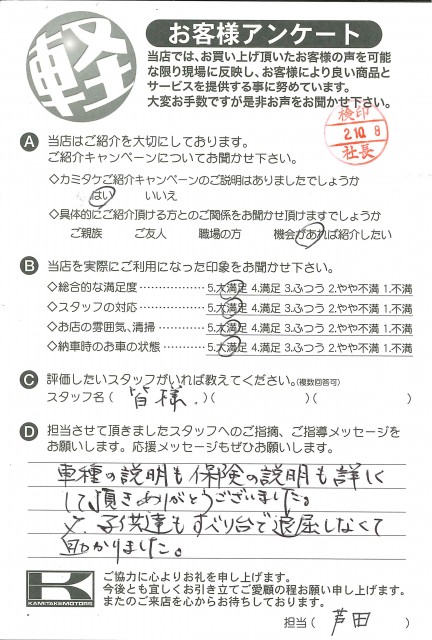 軽
お客様アンケート
当店では、お買い上げ頂いたお客様の声を可能
な限り現場に反映し、お客様により良い商品と
サービスを提供する事に努めています。
大変お手数ですが是非お声をお聞かせ下さい。
検印
2.10.8
社長
A 当店はご紹介を大切にしております。
ご紹介キャンペーンについてお聞かせ下さい。
◇カミタケご紹介キャンペーンのご説明はありましたでしょうか
はい いいえ
◇具体的にご紹介頂ける方とのご関係をお聞かせ頂けますでしょうか
ご親族 ご友人 職場の方 機会があれば紹介したい
B 当店を実際にご利用になった印象をお聞かせ下さい。
◇総合的な満足度……………5.大満足 4.満足 3.ふつう 2.やや不満 1.不満
◇スタッフの対応……………5.大満足 4.満足 3.ふつう 2.やや不満 1.不満
◇お店の雰囲気、清掃………5.大満足 4.満足 3.ふつう 2.やや不満 1.不満
◇納車時のお車の状態………5.大満足 4.満足 3.ふつう 2.やや不満 1.不満
C 評価したいスタッフがいれば教えてください。(複数回答可)
スタッフ名( 皆様. )( )( )
D 担当させて頂きましたスタッフへのご指摘、ご指導メッセージを
お願いします。応援メッセージもぜひお願いします。
車種の説明も保険の説明も詳しく
して頂きありがとうございました。
又、子供達もすべり台で退屈しなくて
助かりました。
K
KAMITAKE MOTORS
ご協力に心よりお礼を申し上げます。
今後とも宜しくお引き立てご愛顧の程お願い申し上げます。
またのご来店を心からお待ちしております。
担当( 芦田 )